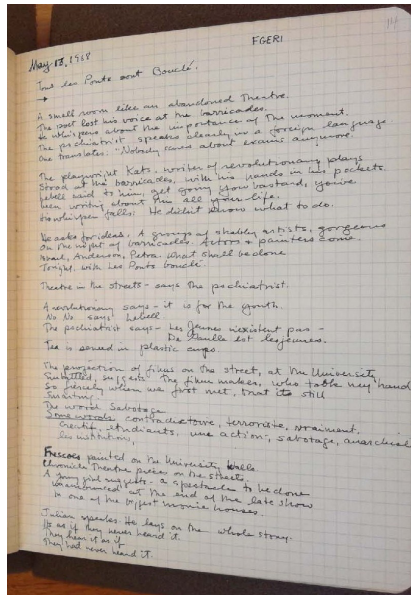 EGERI
14
May 13, 1968
Tous les Ponts sont Bouclé.
A small room like an abandoned Theatre.
The poet lost his voice at the barricades.
He whispers about the importance of the moment.
The psychiatrist speaks clearly in a foreign language
One translates. "Nobody cares about exams anymore.
The playwright Kats, writer of revolutionary plays
Stood at the barricades, with his hands in his pockets.
Lebell said to him, get going you bastard, you've
been writing about this all your life.
He didn't know what to do.
He asks for ideas. A group of shabby artists, gorgeous
On the night of barricades. Actors & painters come.
Israel, Anderson, Petra. What shall be done
Tonight, with Les Ponts bouclé.
Theatre in the streets - says the psychiatrist.
A revolutionary says - it is for the youth.
No No says Lebell
The psychiatrist says - Les Jeunes n'existent pas -
De Gaulle est les jeunes.
Tea is served in plastic cups.
The projection of films on the street, at the University,
The film makers, who took my hand
So fiercely when we first met, that it's still
The word Sabotage
Some words contradictoire, terroriste, vraiment.
Creatif, etudiants, une action, sabotage,
les institutions,
Frescoes painted on the University Walls.
Chronicle Theatre pieces on the streets.
A young girl suggests - a spectacle to be done
unannounced at the end of the late show
in one of the biggest movie houses.
Julian speaks. He lays on the whole story
as if they never heard it.
They hear it as if
They had never heard it.